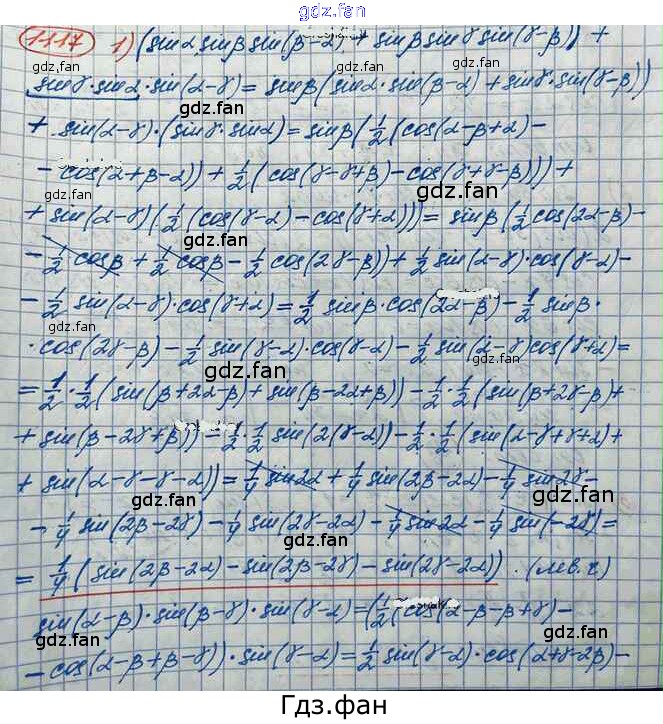 gdz.fan
1117 1) (sinα sinβ sin(β-α) + sinβ sinγ sin(γ-β)) +
gdz.fan gdz.fan gdz.fan
sinγ·sinα·sin(α-γ) = sinβ(sinα·sin(β-α) + sinγ·sin(γ-β))
+ sin(α-γ)·(sinγ·sinα) = sinβ(1/2(cos(α-β+α) -
- cos(α+β-α)) + 1/2(cos(γ-γ+β) - cos(γ+γ-β))) +
gdz.fan gdz.fan gdz.fan
+ sin(α-γ)(1/2(cos(γ-α) - cos(γ+α))) = sinβ(1/2 cos(2α-β) -
- 1/2 cosβ + 1/2 cosβ - 1/2 cos(2γ-β)) + 1/2 sin(α-γ)·cos(γ-α) -
- 1/2 sin(α-γ)·cos(γ+α) = 1/2 sinβ·cos(2α-β) - 1/2 sinβ·
gdz.fan gdz.fan gdz.fan
·cos(2γ-β) - 1/2 sin(γ-α)·cos(γ-α) - 1/2 sin(α-γ)cos(γ+α) =
= 1/2·1/2(sin(β+2α-β) + sin(β-2α+β)) - 1/2·1/2(sin(β+2γ-β) +
gdz.fan gdz.fan gdz.fan
+ sin(β-2γ+β)) - 1/2·1/2 sin(2(γ-α)) - 1/2·1/2(sin(α-γ+γ+α) +
+ sin(α-γ-γ-α)) = 1/4 sin2α + 1/4 sin(2β-2α) - 1/4 sin2γ -
- 1/4 sin(2β-2γ) - 1/4 sin(2γ-2α) - 1/4 sin2α - 1/4 sin(-2γ) =
gdz.fan gdz.fan gdz.fan
= 1/4(sin(2β-2α) - sin(2β-2γ) - sin(2γ-2α)). (лев.ч)
sin(α-β)·sin(β-γ)·sin(γ-α) = (1/2(cos(α-β-β+γ) -
gdz.fan gdz.fan gdz.fan
- cos(α-β+β-γ))·sin(γ-α) = 1/2 sin(γ-α)·cos(α+γ-2β) -
Гдз.фан